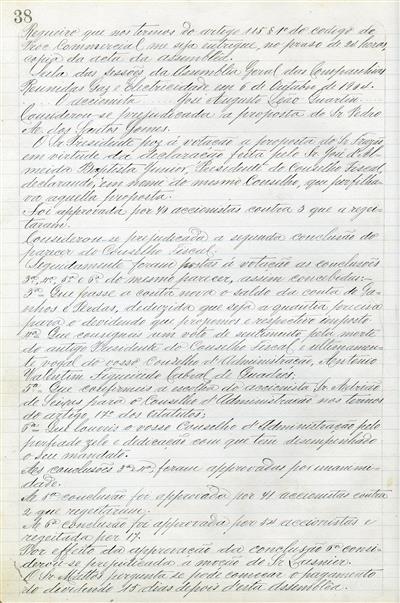 38
Requeiro que nos termos do artigo 115 § 1º do codigo do
Proc. Commercial me seja entregue, no praso de 24 horas,
copia da acta da assembleá.
Sala das sessões da Assembléa Geral das Companhias
Reunidas Gaz e Electricidade em 6 de Outubro de
O accionista José Augusto Leão Quartin
Considerou-se prejudicada a proposta do Sr. Pedro
M. dos Santos Gomes.
O Sr. Presidente poz à votação a proposta do Sr. Frazão
em virtude da declaração feita pelo Sr. José d'Al-
meida Baptista Junior, Presidente do Conselho Fiscal,
declarando, em nome do mesmo Conselho, que perfilha-
va aquella proposta.
Foi approvada por accionistas contra 3 que a regei-
taram.
Considerou-se prejudicada a segunda conclusão do
parecer do Conselho Fiscal.
Seguidamente foram postas à votação as conclusões
3ª, 4ª, 5ª e 6ª do mesmo parecer, assim concebidas:
3ª Que passe a conta nova o saldo da conta de Ga-
nhos e Perdas, deduzida que seja a quantia precisa
para o dividendo que propomos e respectivo imposto.
4ª Que consigneis um voto de sentimento pela morte
do antigo Presidente do Conselho Fiscal e ultimamen-
te vogal do vosso Conselho d'Administração, Antonio
Valentim Cabral de Quadros;
5ª Que confirmeis a escolha do accionista Sr. Adrião
de Seixas para o Conselho d'Administração nos termos
do artigo 17º dos estatutos;
6ª Que louveis o vosso Conselho d'Administração pelo
porfiado zelo e dedicação com que tem desempenhado
o seu mandato.
As conclusões 3ª e 4ª foram approvadas por unanimi-
dade.
A conclusão foi approvada por 41 accionistas contra
2 que regeitaram.
A 6ª conclusão foi approvada por accionistas e
regeitada por 17.
Por effeito da approvação da conclusão 6ª consi-
derou-se prejudicada a moção do Sr. Lasnier.
O Sr. Mattos pergunta se pode começar o pagamento
do dividendo 15 dias depois d'esta assembléa.